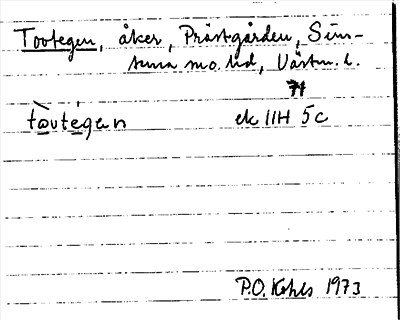 Tootegen, åker, Prästgården, Sim-
tuna sn o. hd, Västm. l.
71
tòo̲vte̲gan
ek 11H 5c
P.O. Kohls 1973